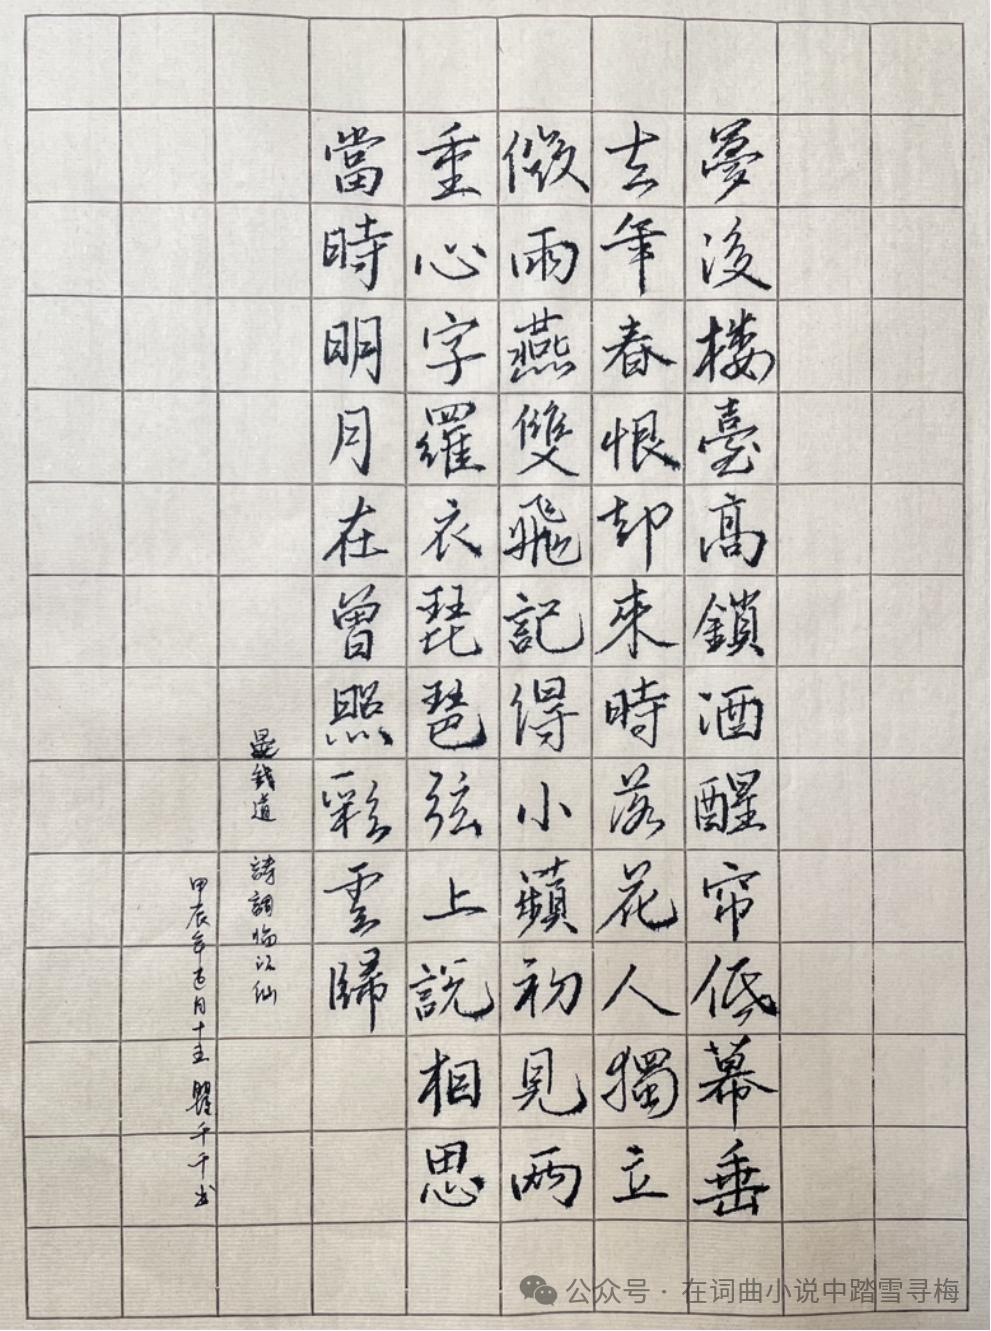 夢後楼臺高鎖酒醒帘低幕垂
去年春恨却來時落花人獨立
微雨燕雙飛記得小蘋初見两
重心字羅衣琵琶弦上説相思
當時明月在曾照彩雲歸
晏錢道 詩調臨江仙
甲辰年五月十五 千千书
公众号·在词曲小说中踏雪寻梅